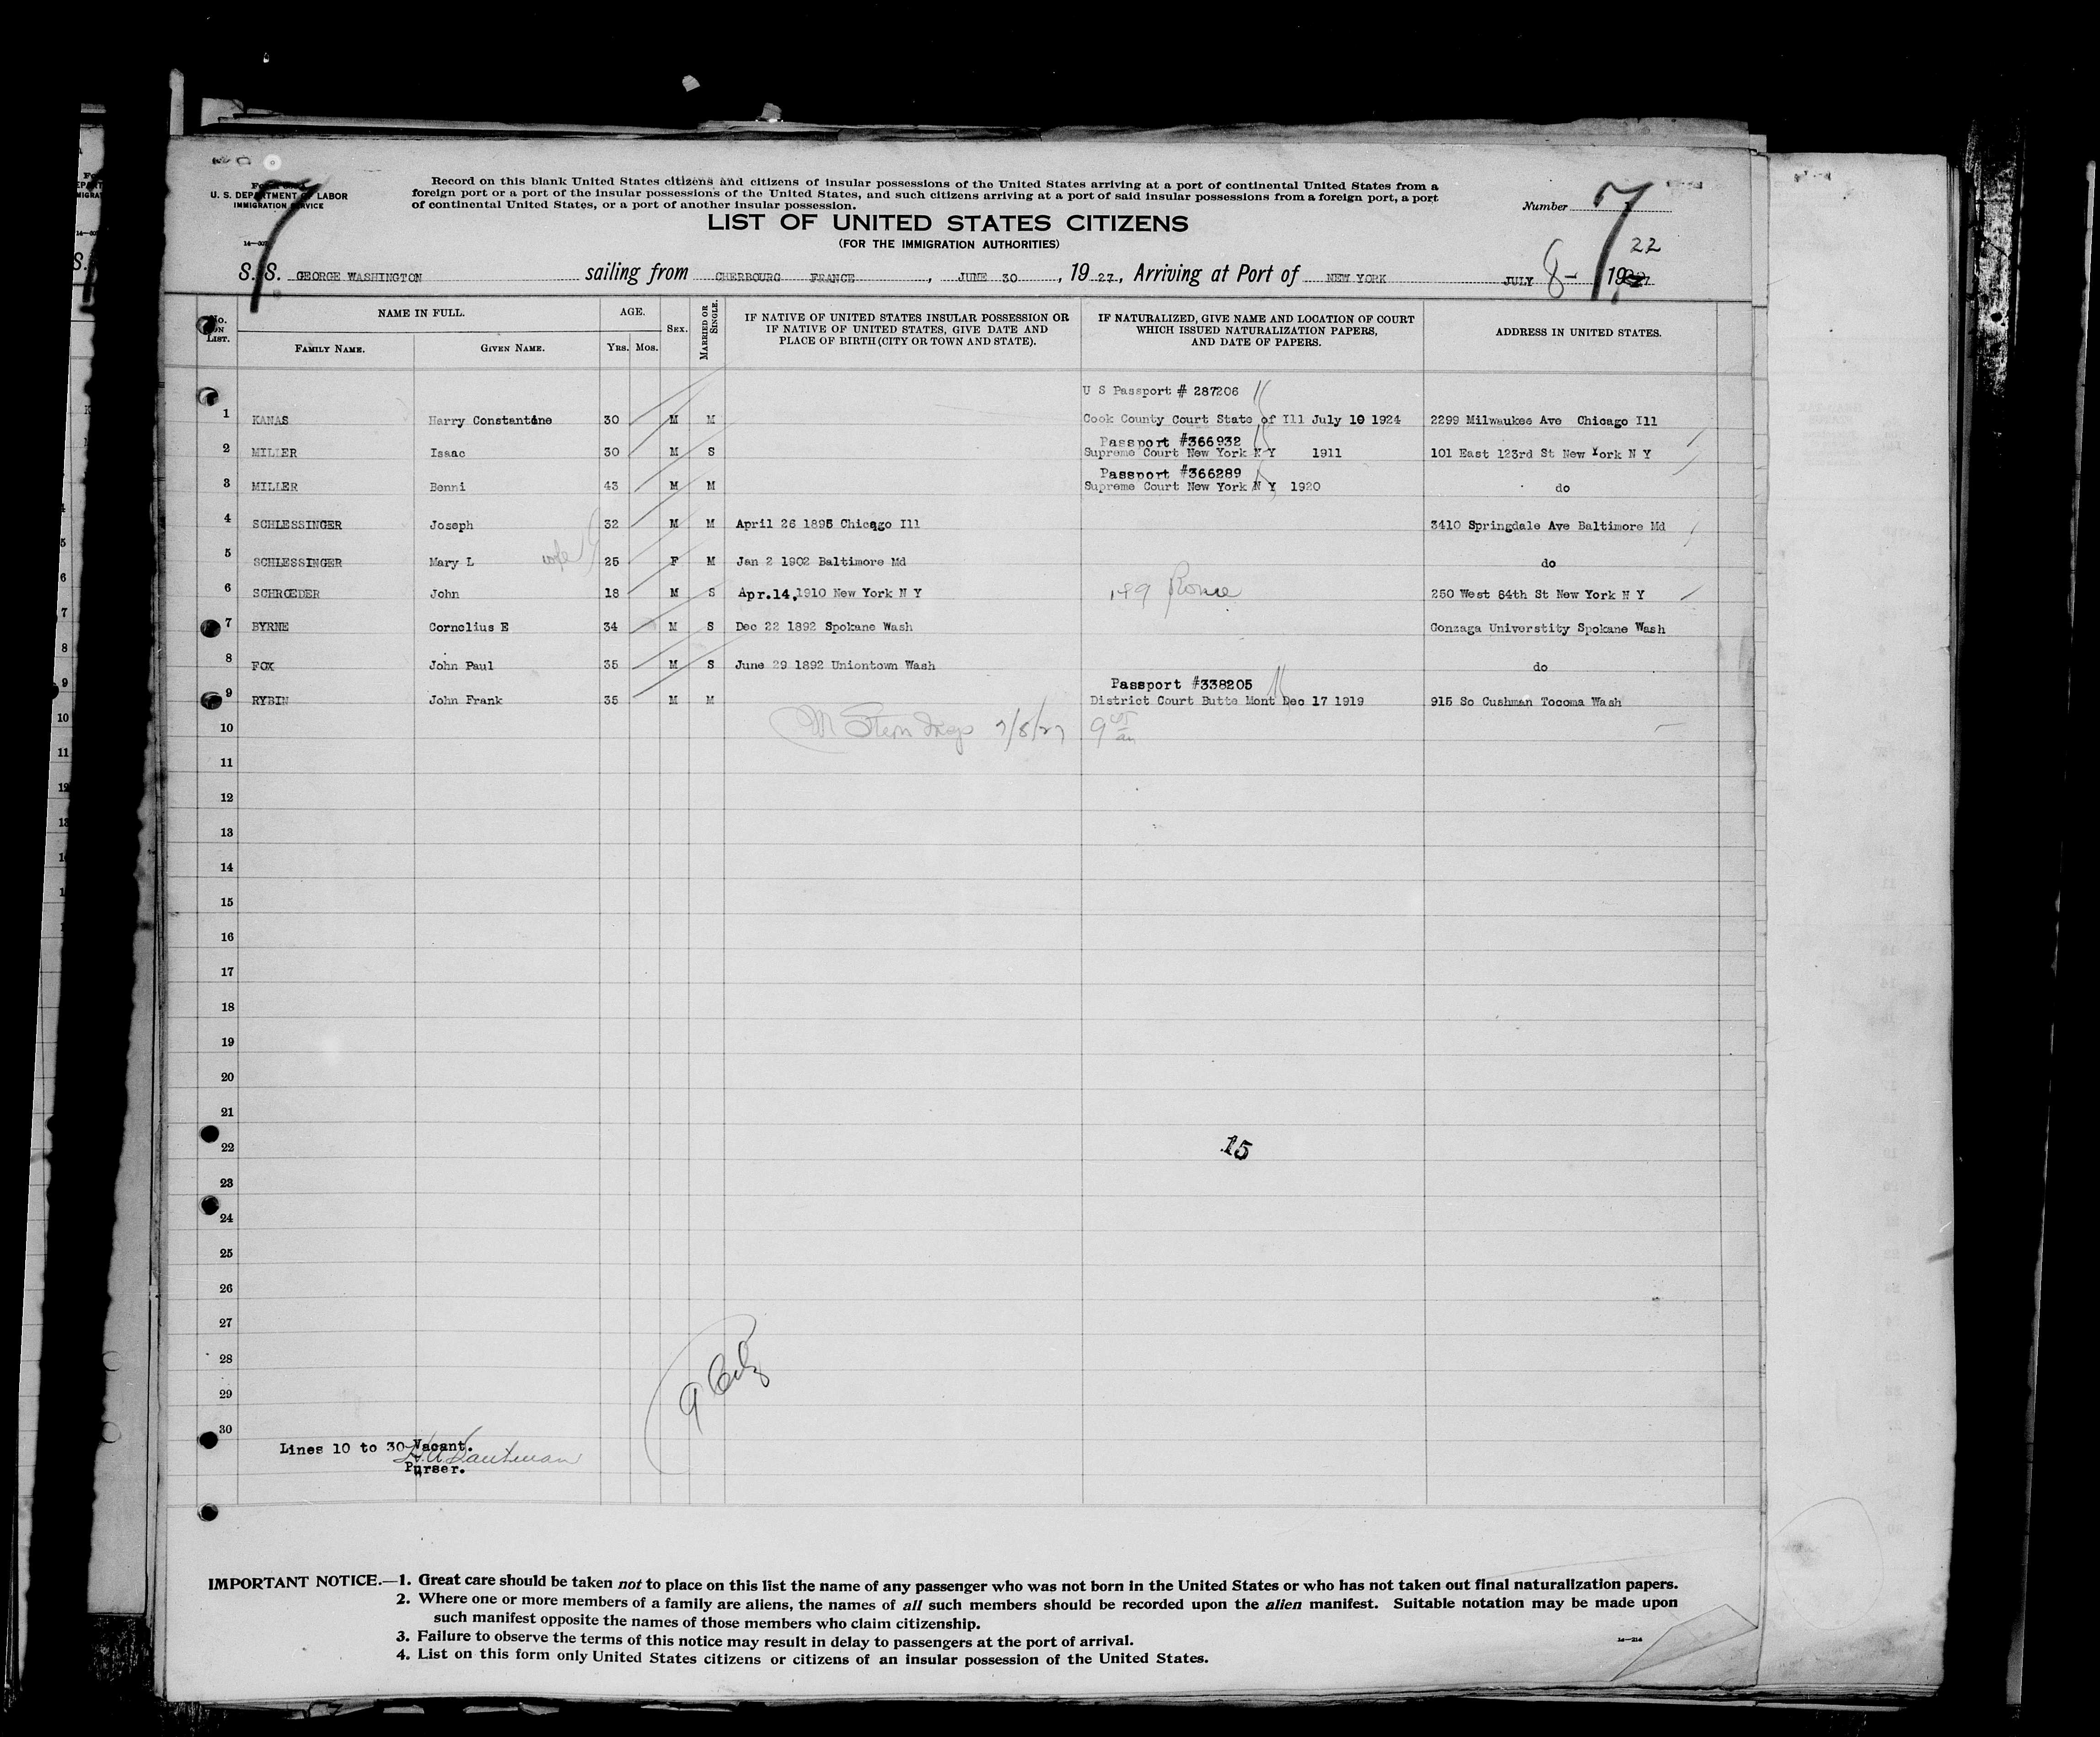 U. S. DEPARTMENT OF LABOR
IMMIGRATION SERVICE
Record on this blank United States citizens and citizens of insular possessions of the United States arriving at a port of continental United States from a
foreign port or a port of the insular possessions of the United States, and such citizens arriving at a port of said insular possessions from a foreign port, a port
of continental United States, or a port of another insular possession.
Number 7
LIST OF UNITED STATES CITIZENS
(FOR THE IMMIGRATION AUTHORITIES)
22
S. S. GEORGE WASHINGTON sailing from CHERBOURG FRANCE, JUNE 30, 19 27, Arriving at Port of NEW YORK JULY 8- 1927
No. ON LIST. NAME IN FULL. AGE. SEX. MARRIED OR SINGLE. IF NATIVE OF UNITED STATES INSULAR POSSESSION OR IF NATIVE OF UNITED STATES, GIVE DATE AND PLACE OF BIRTH (CITY OR TOWN AND STATE). IF NATURALIZED, GIVE NAME AND LOCATION OF COURT WHICH ISSUED NATURALIZATION PAPERS, AND DATE OF PAPERS. ADDRESS IN UNITED STATES.
FAMILY NAME. GIVEN NAME. YRS. MOS.
U S Passport # 287206
1 KANAS Harry Constantine 30 M M Cook County Court State of Ill July 10 1924 2299 Milwaukee Ave Chicago Ill
Passport #366932
2 MILLER Isaac 30 M S Supreme Court New York N Y 1911 101 East 123rd St New York N Y
Passport #366289
3 MILLER Benni 43 M M Supreme Court New York N Y 1920 do
4 SCHLESSINGER Joseph 32 M M April 26 1895 Chicago Ill 3410 Springdale Ave Baltimore Md
5 SCHLESSINGER Mary L wife 25 F M Jan 2 1902 Baltimore Md do
6 SCHROEDER John 18 M S Apr.14,1910 New York N Y 149 Rome 250 West 64th St New York N Y
7 BYRNE Cornelius E 34 M S Dec 22 1892 Spokane Wash Gonzaga Universtity Spokane Wash
8 FOX John Paul 35 M S June 29 1892 Uniontown Wash do
Passport #338205
9 RYBIN John Frank 35 M M District Court Butte Mont Dec 17 1919 915 So Cushman Tocoma Wash
10 M Stern Insp 7/8/27 9
11
12
13
14
15
16
17
18
19
20
21
22 15
23
24
25
26
27
28
29
30
Lines 10 to 30 Vacant.
Purser.
IMPORTANT NOTICE.—1. Great care should be taken not to place on this list the name of any passenger who was not born in the United States or who has not taken out final naturalization papers.
2. Where one or more members of a family are aliens, the names of all such members should be recorded upon the alien manifest. Suitable notation may be made upon
such manifest opposite the names of those members who claim citizenship.
3. Failure to observe the terms of this notice may result in delay to passengers at the port of arrival.
4. List on this form only United States citizens or citizens of an insular possession of the United States.
14—214